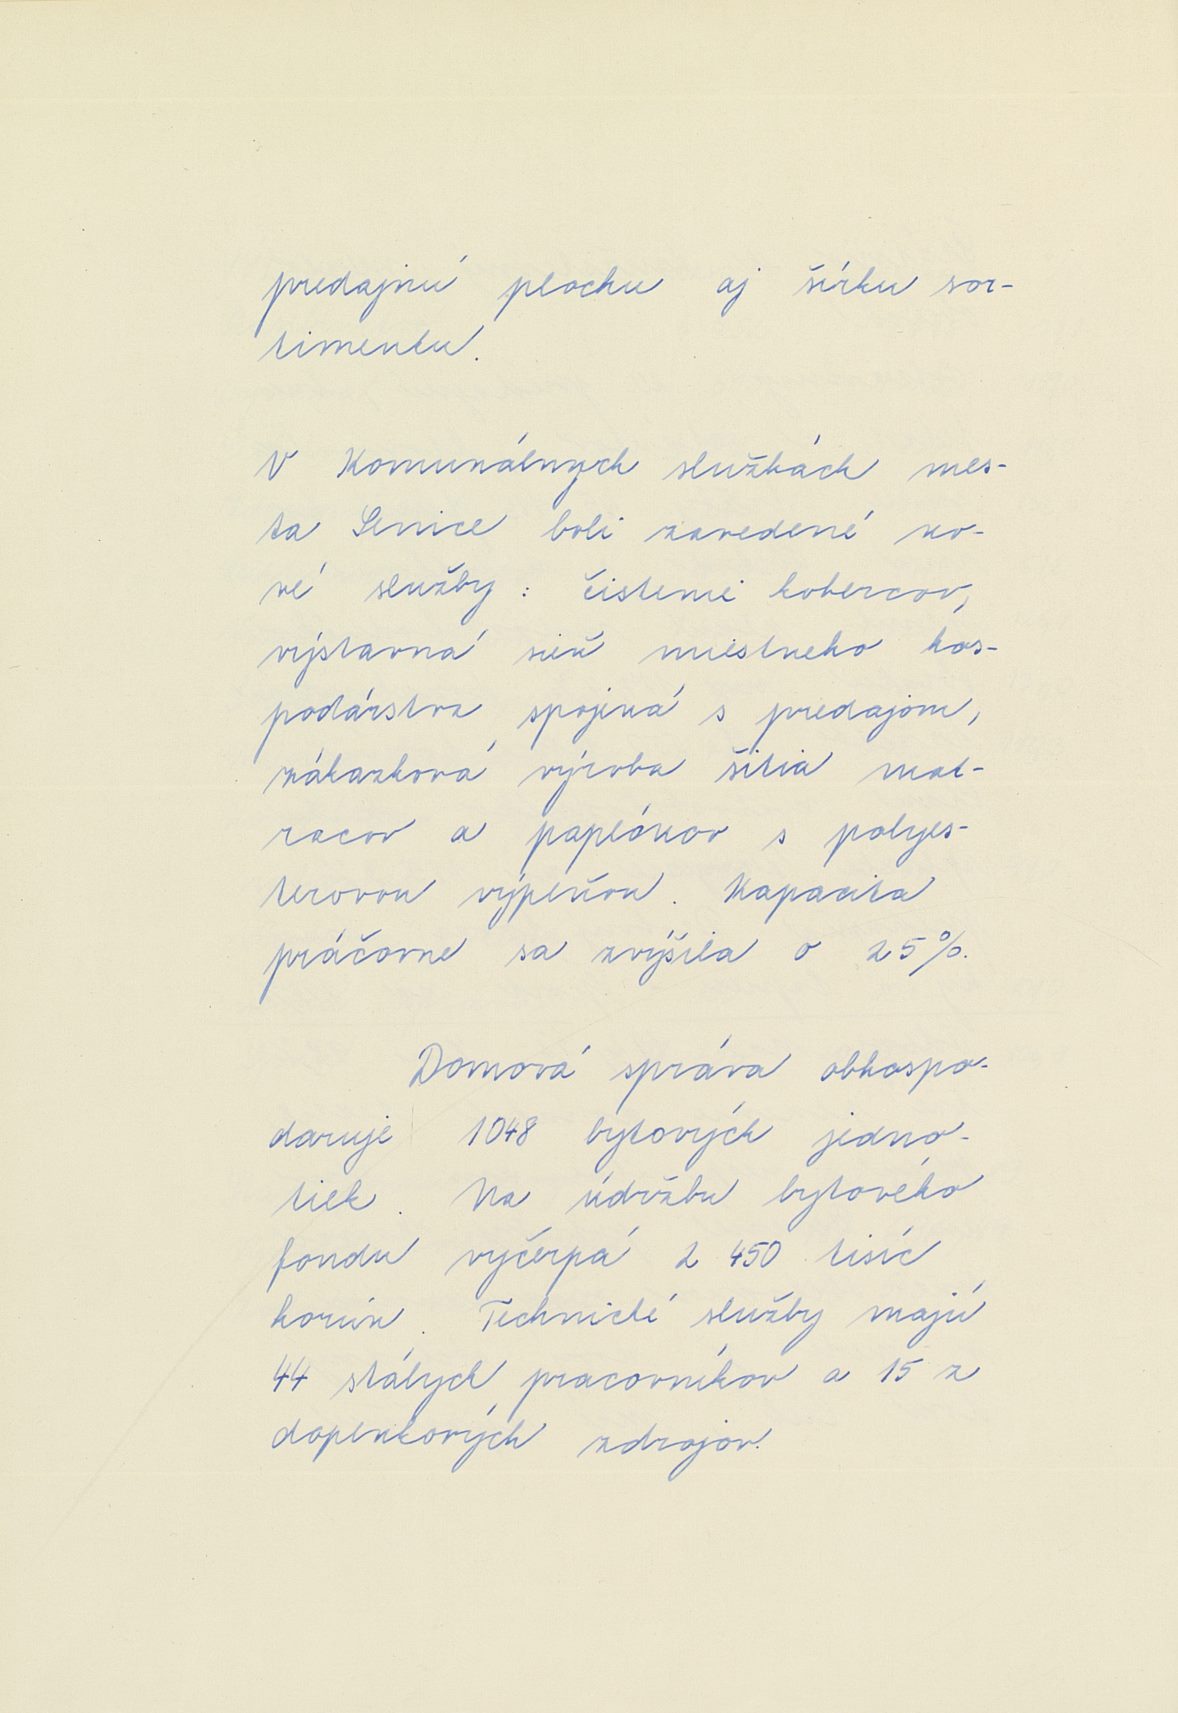 predajnú plochu aj šírku sor-
timentu.
V Komunálnych službách mes-
ta Senice boli zavedené no-
vé služby: čistenie kobercov,
výstavná sieň miestneho hos-
podárstva spojená s predajom,
zákazková výroba šitia mat-
racov a paplónov s polyes-
terovou výplňou. Kapacita
práčovne sa zvýšila o 25%.
Domová správa obhospo-
daruje 1048 bytových jedno-
tiek. Na údržbu bytového
fondu vyčerpá 2 450 tisíc
korún. Technické služby majú
44 stálych pracovníkov a 15 z
doplnkových zdrojov.